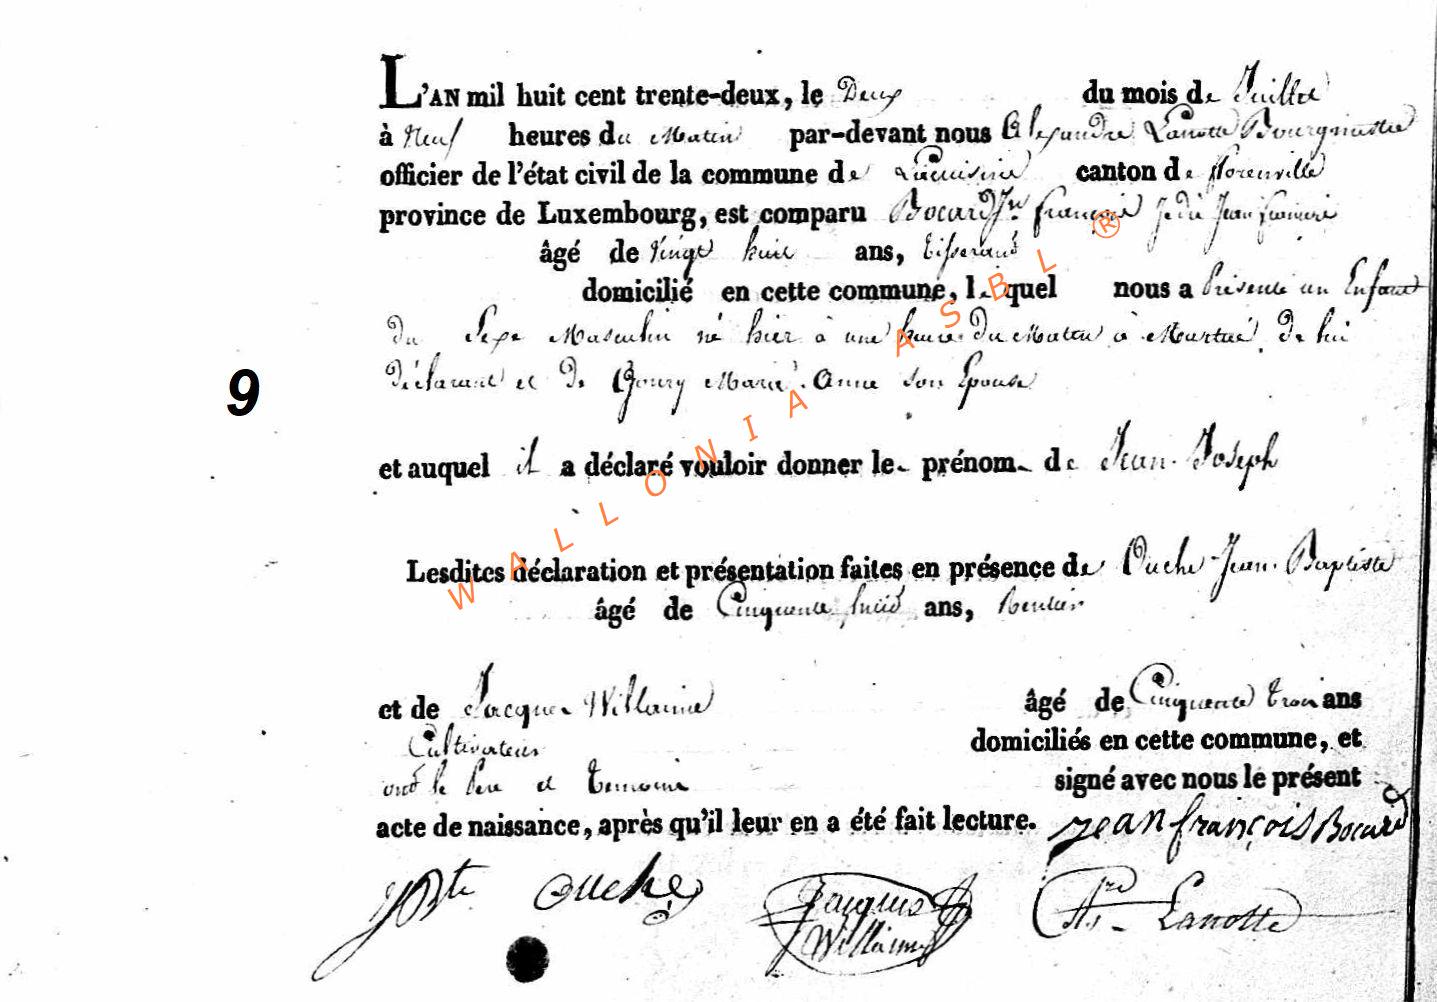 L'AN mil huit cent trente-deux, le Deux du mois de Juillet
à Neuf heures du Matin par-devant nous Alexandre Lanotte Bourgmestre
officier de l'état civil de la commune de Lacuisine canton de florenville
province de Luxembourg, est comparu Bocard Jn françois Jean
âgé de Vingt huit ans, tisserand
domicilié en cette commune, le quel nous a Présenté un Enfant
du Sexe Masculin né hier à une heure du Matin à Martué de lui
déclarant et de Goury Marie Anne son Epouse
9
et auquel il a déclaré vouloir donner le prénom de Jean Joseph
Lesdites déclaration et présentation faites en présence de Ouche Jean Baptiste
âgé de Cinquante huit ans, Rentier
et de Jacques Willaime âgé de Cinquante trois ans
Cultivateur domiciliés en cette commune, et
ont le Père et temoins signé avec nous le présent
acte de naissance, après qu'il leur en a été fait lecture. jean françois Bocard
JBte Ouche Jacques Willaime Lanotte
WALLONIA ASBL ®